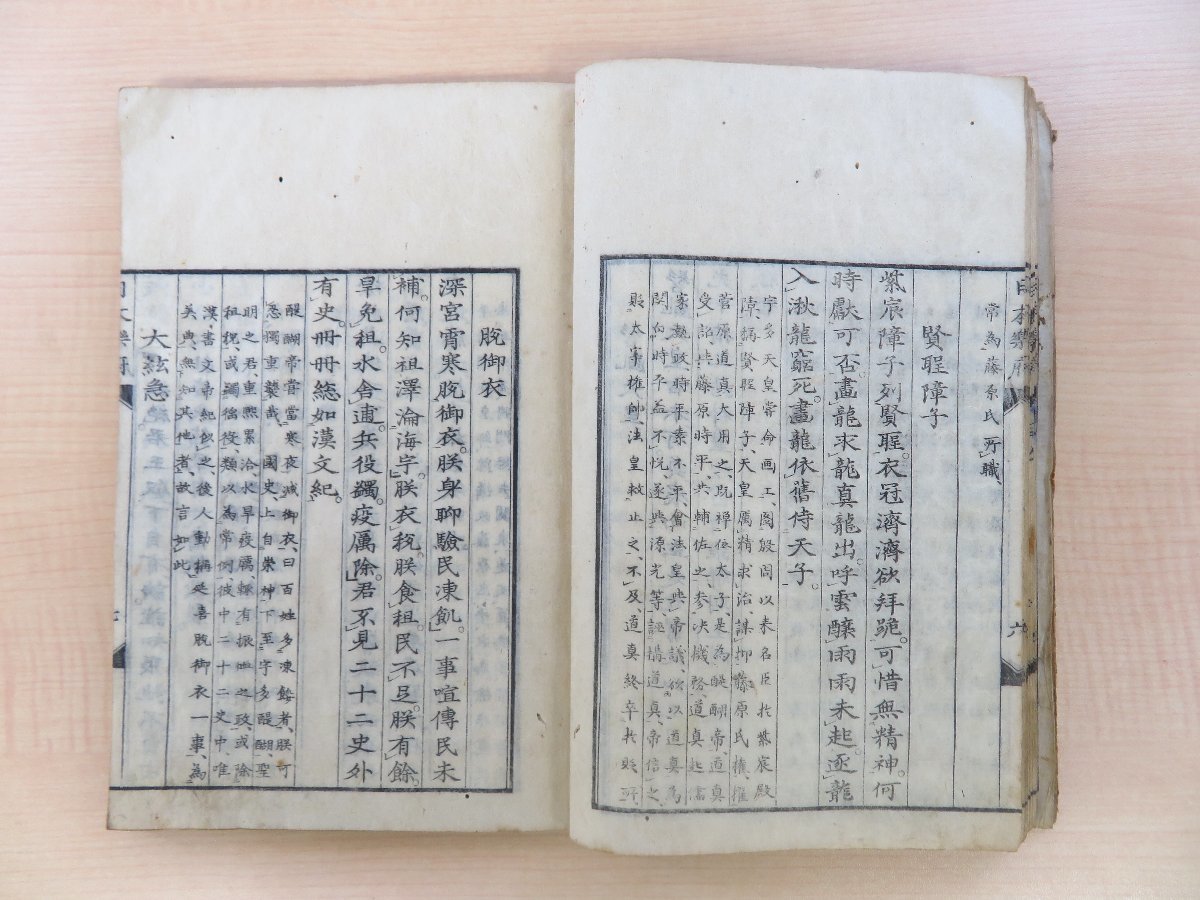 常為藤原氏所職、
賢聖障子
紫宸障子列賢聖。衣冠濟濟欲拜跪。可惜無精神。何
時獻可否。畫龍求龍真龍出。呼雲釀雨雨未起。逐龍
入湫龍窮死。畫龍依舊侍天子。
宇多天皇嘗命画工、圖殷周以來名臣於紫宸殿
障、稱賢聖障子、天皇厲精求治、謀抑藤原氏權、擢
菅原道真大用之、既禪位太子、是為醍醐帝、道真
受詔、與藤原時平、共輔佐之、參決機務、道真起儒
家執政、時平素不平、會法皇與帝議、欲以道真為
關白、時平益不悅、遂與源光等誣構道真、帝信之、
貶太宰權帥、法皇救止之、不及、道真終卒於貶所
脫御衣
深宮霄寒脫御衣。朕身聊驗民凍飢。一事喧傳民未
補。何知祖澤淪海宇。朕衣稅朕食租。民不足朕有餘。
旱免租。水舍逋。兵役蠲。疫厲除。君不見二十二史外
有史。冊冊總如漢文紀。
醍醐帝嘗當寒夜、減御衣、曰百姓多凍餒者、朕可
忍獨重襲哉、國史上自崇神下至宇多醍醐、聖
明之君、重熙累洽、水旱疫厲、輒有振恤之政、或除
租稅或蠲徭役、類以為常例、彼中二十二史中、唯
漢書文帝紀似之、後人動稱延喜脫御衣一事、為
美典、無知其他者、故言如此、
大絃急
日本樂府